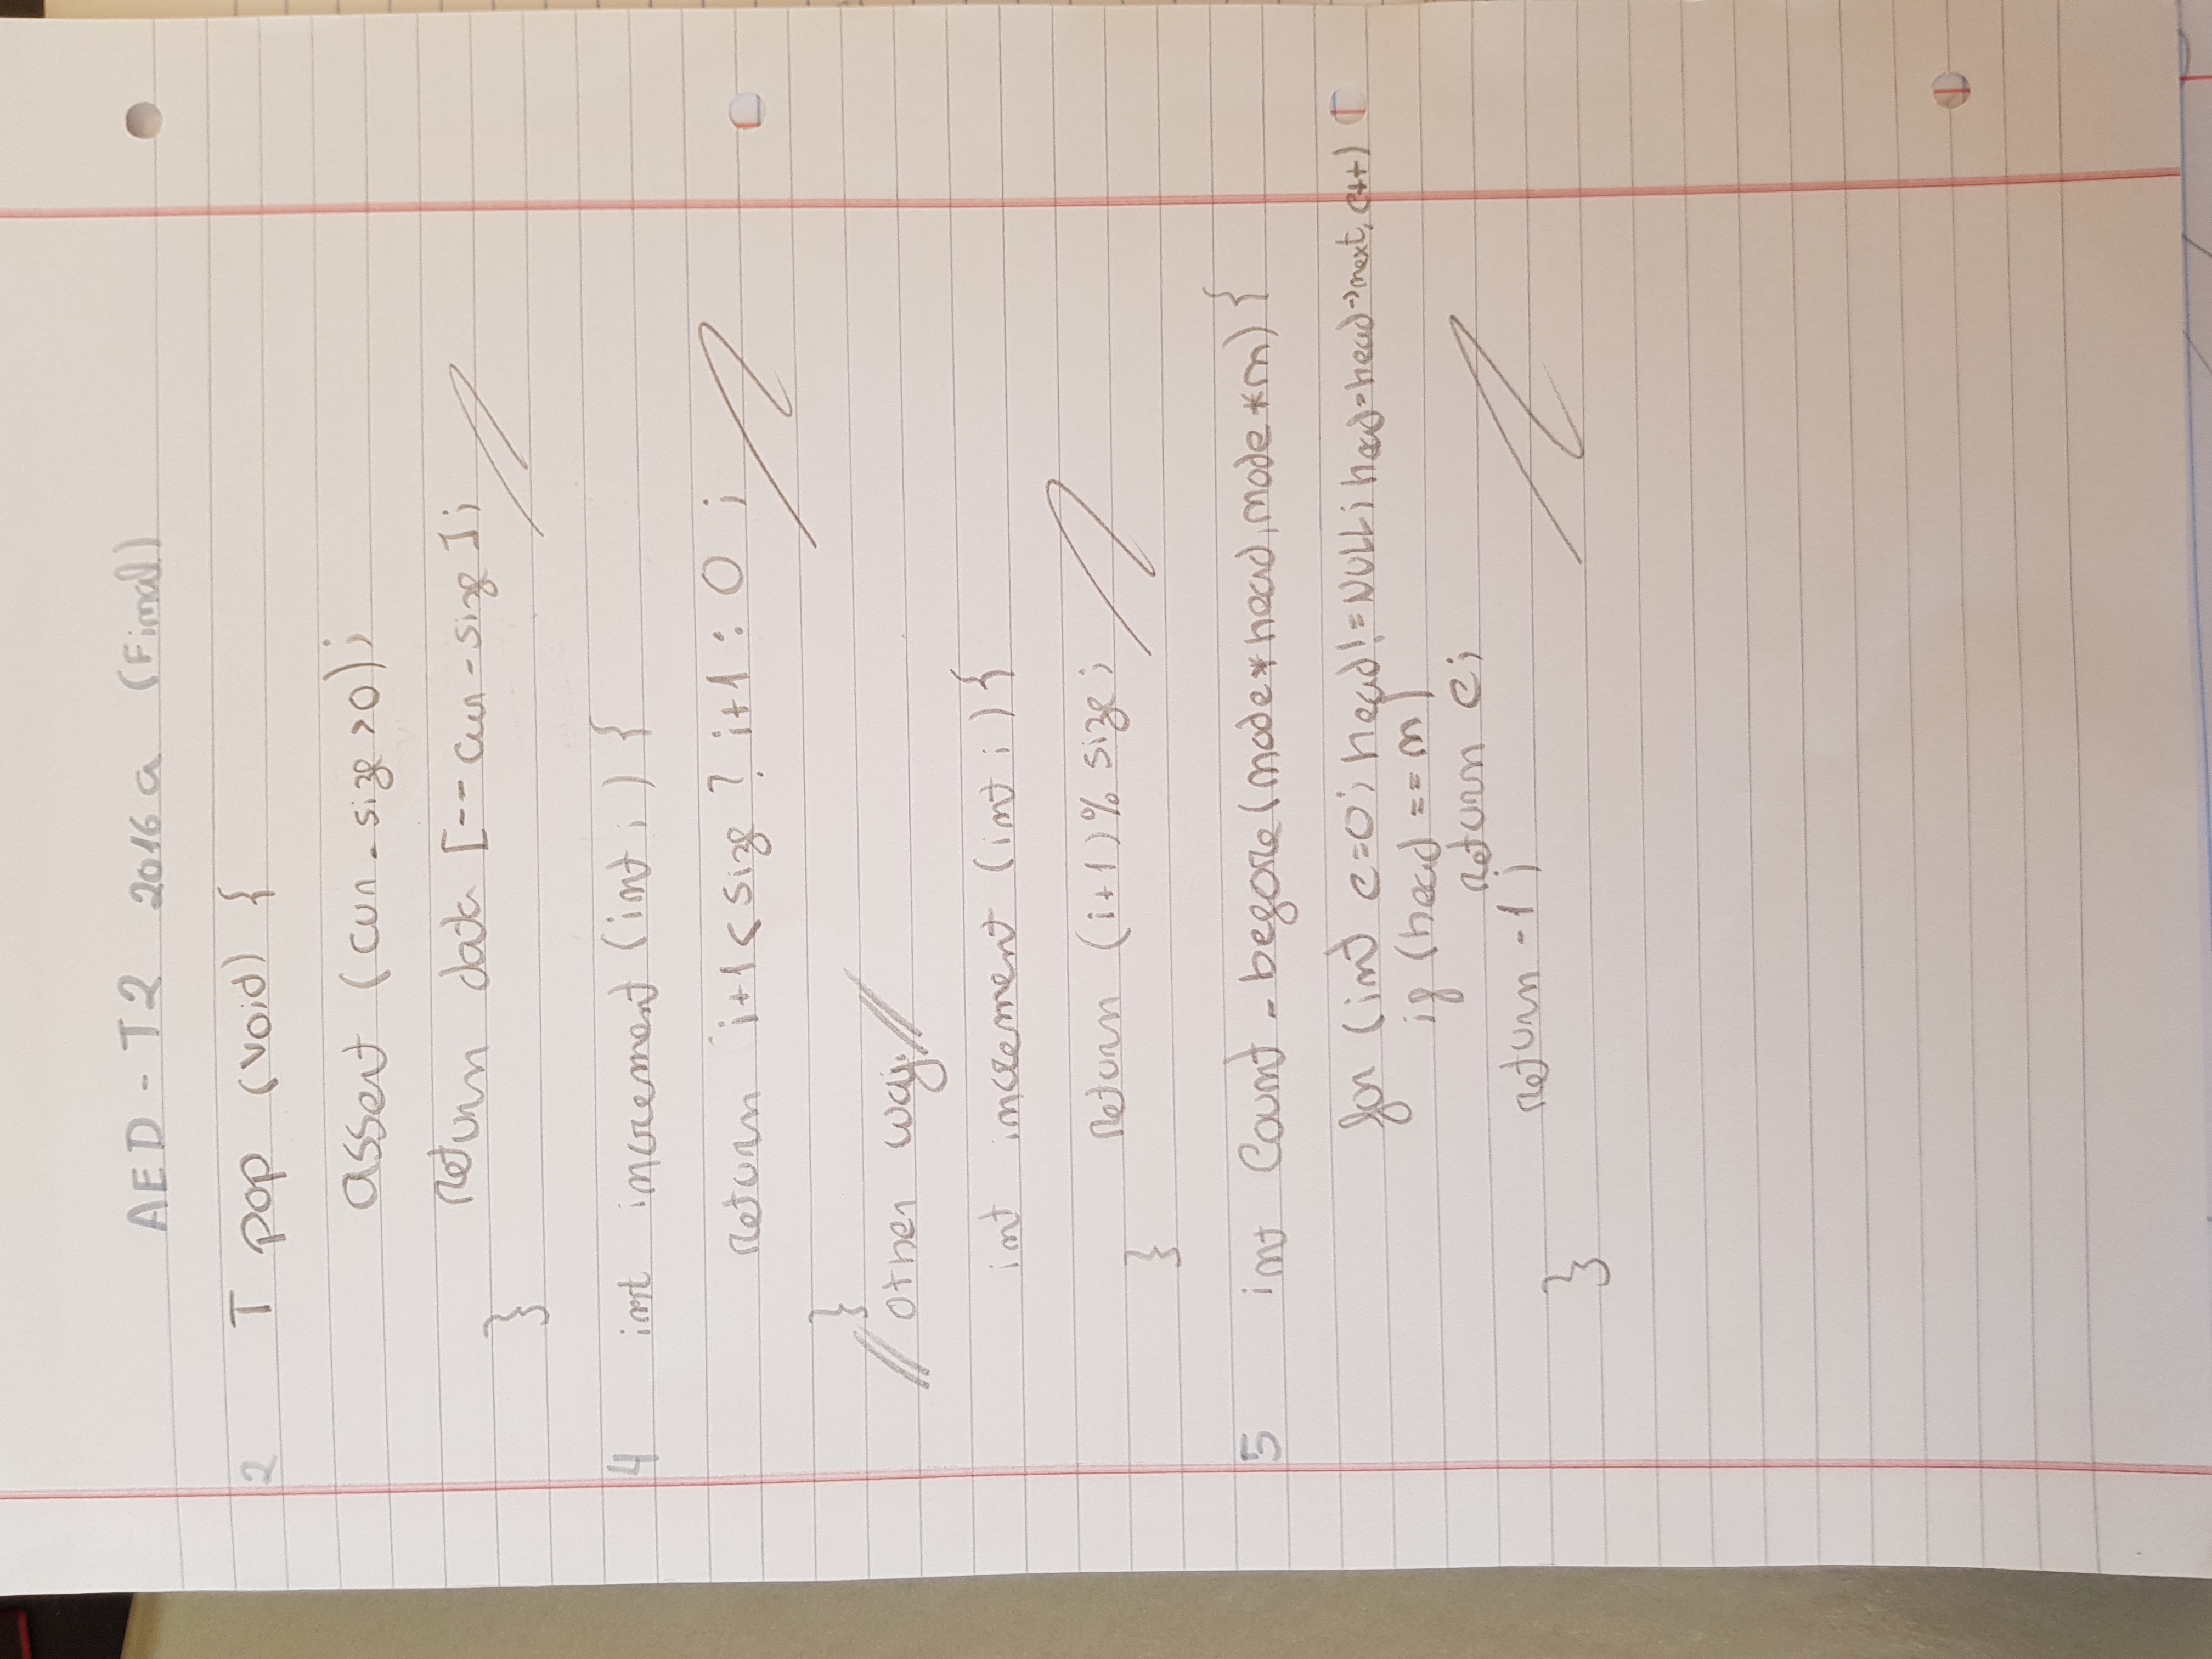 AED - T2 2016a (Final)
2 T pop (void) {
assert (cur_size>0);
return data [--cur_size];
}
4 int increment (int i) {
return i+1<size ? i+1 : 0 ;
}
// other way: //
int increment (int i) {
return (i+1)% size;
}
5 int Count_before(node*head,node*n) {
for (int c=0; head!=NULL; head=head->next, c++)
if (head == n)
return c;
return -1;
}